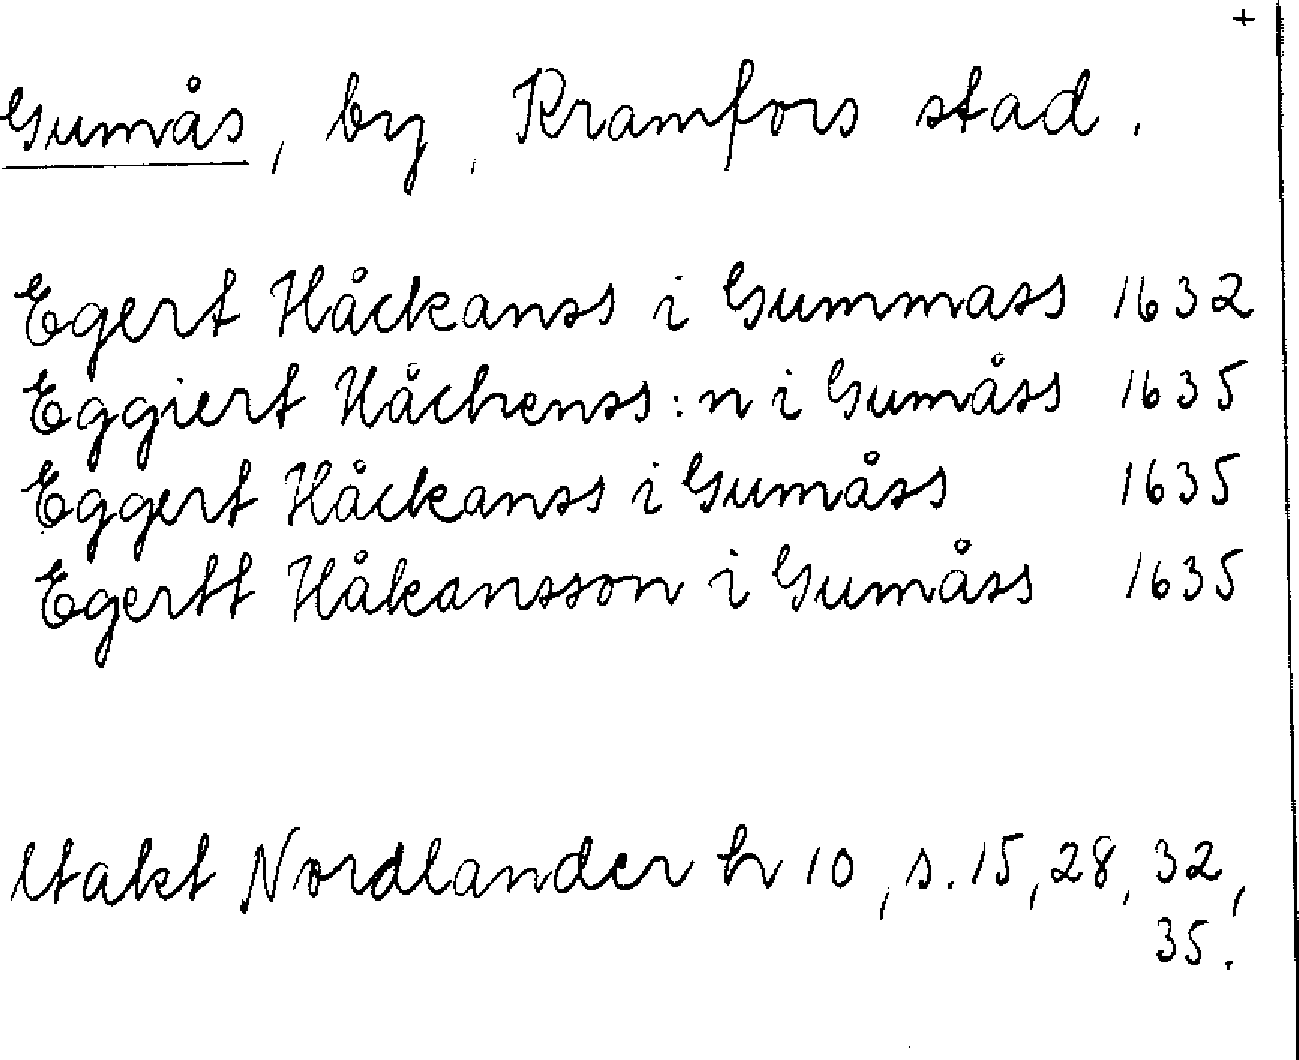 +
Gumås, by, Kramfors stad.
Egert Håckanss i Gummass 1632
Eggiert Håchenss:n i Gumåss 1635
Eggert Håckanss i Gumåss 1635
Egertt Håkansson i Gumåss 1635
Utakt Nordlander h 10, s. 15, 28, 32,
35.